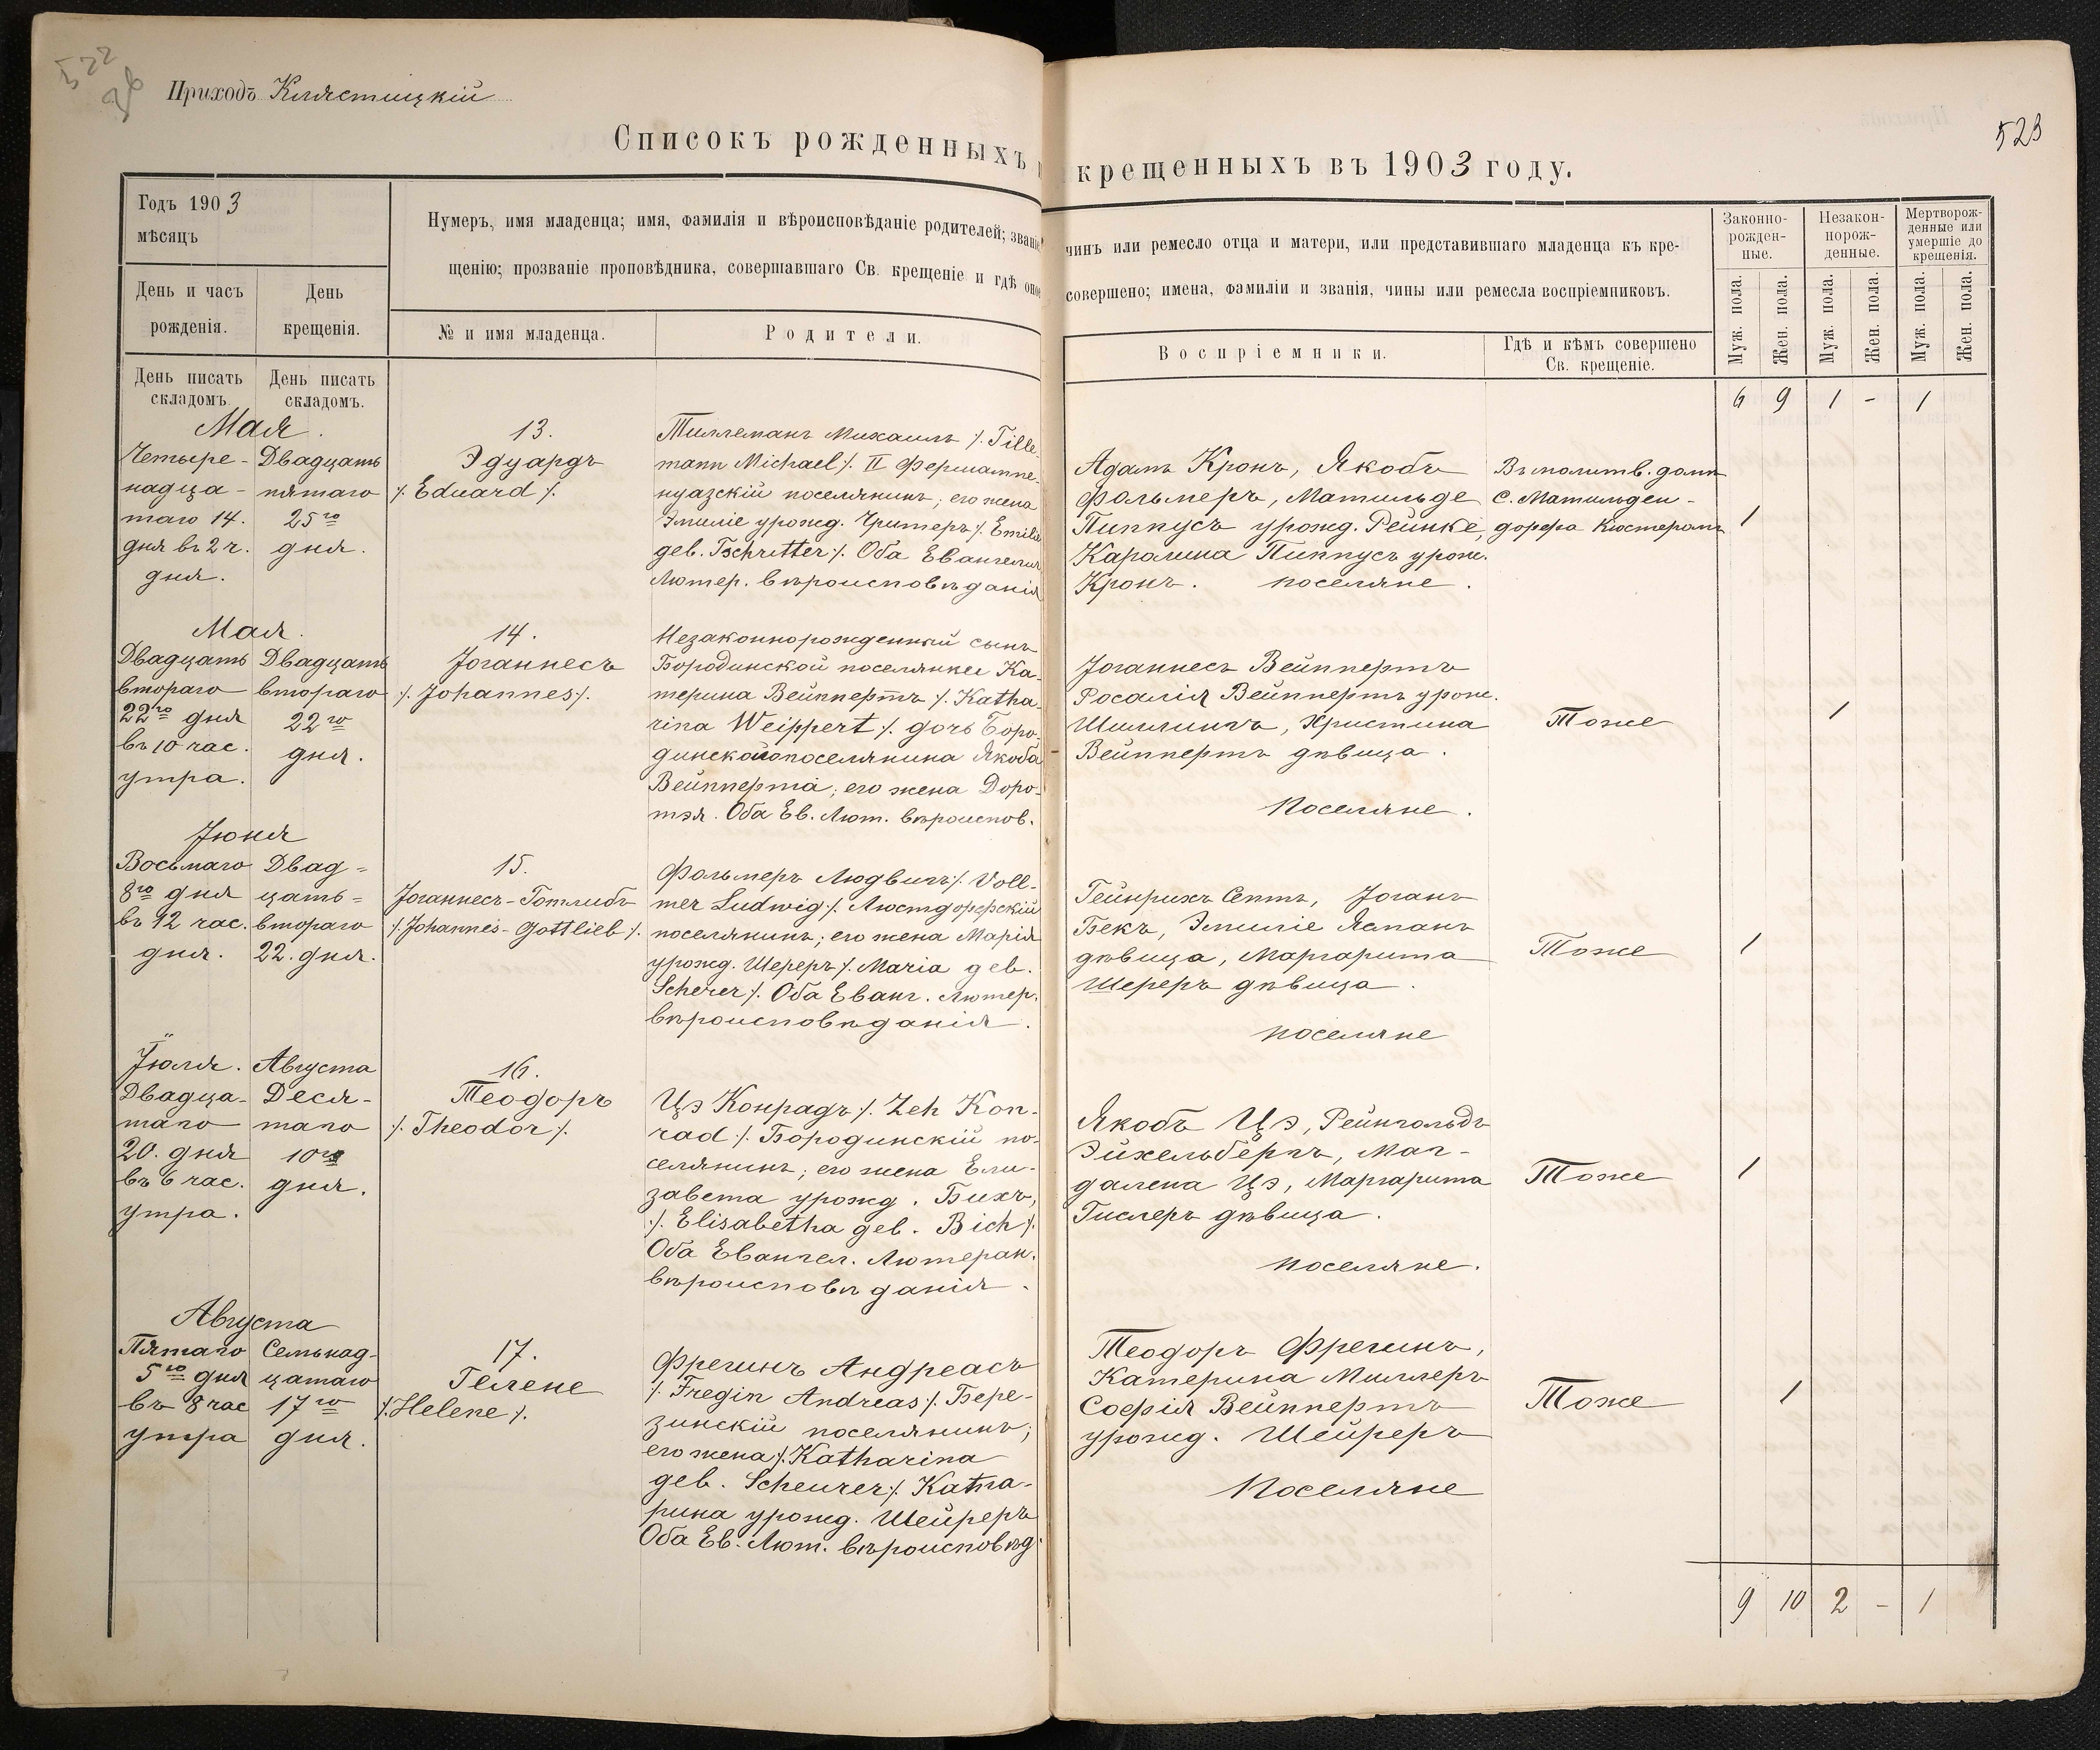 522
Приходъ Кллстицкій
523
Списокъ рожденныхъ
крещенныхъ въ 1903 году.
Годъ 1903
мѣсяцъ
День и часъ
рожденія.
День
крещенія.
Нумеръ, имя младенца; имя, фамилія и вѣроисповѣданіе родителей; званіе
щенію; прозваніе проповѣдника, совершавшаго Св. крещеніе и гдѣ оное
№ и имя младенца.
Родители.
чинъ или ремесло отца и матери, или представившаго младенца къ кре-
совершено; имена, фамиліи и званія, чины или ремесла воспріемниковъ.
Воспріемники.
Гдѣ и кѣмъ совершено
Св. крещеніе.
Законно-
рожден-
ные.
Незакон-
норож-
денные.
Мертворож-
денные или
умершіе до
крещенія.
Муж. пола.
Жен. пола.
Муж. пола.
Жен. пола.
Муж. пола.
Жен. пола.
День писать
складомъ
День писать
складомъ.
6 9 1 - 1
Мая.
Четыре-
надца-
таго 14.
дня въ 2 ч.
дня.
Двадцать
пятаго
25го
дня.
13.
Эдуардъ
/. Eduard /.
Тиллеманъ Михаилъ /. Tille-
mann Michael /. II Фершампе-
нуазскій поселянинъ; его жена
Эмиліе урожд. Чриттеръ /. Emilie
geb. Tschritter /. Оба Евангелич.
Лютер. вѣроисповѣданія
Адамъ Кронъ, Якобъ
Фольмеръ, Матильде
Пиппусъ урожд. Рейнке,
Каролина Пиппусъ урож.
Кронъ. поселяне.
Въ молитв. домѣ
с. Матильден-
дорфа Кюстеромъ
1
Мая.
Двадцать
втораго
22го дня
въ 10 час.
утра.
Двадцать
втораго
22го
дня.
14.
Іоганнесъ
/. Johannes /.
Незаконнорожденный сынъ
Бородинской поселянки Ка-
терина Вейппертъ /. Katha-
rina Weippert /. дочь Боро-
динскойопоселянина Якоба
Вейпперта; его жена Доро-
тэя. Оба Ев. Лют. вѣроиспов.
Іоганнесъ Вейппертъ
Росалія Вейппертъ урож.
Шиллингъ, Христина
Вейппертъ дѣвица.
Поселяне.
Тоже
1
Іюня
Восьмаго
8го дня
въ 12 час.
дня.
Двад=
цать=
втораго
22. дня.
15.
Іоганнесъ-Готлибъ
/. Johannes-Gottlieb /.
Фольмеръ Людвигъ /. Voll-
mer Ludwig /. Люстдорфскій
поселянинъ; его жена Марія
урожд. Шереръ /. Maria geb.
Scherer /. Оба Еванг. Лютер.
вѣроисповѣданія.
Гейнрихъ Сеттъ, Іоганъ
Бекъ, Эмиліе Ясманъ
дѣвица, Маргарита
Шереръ дѣвица.
поселяне
Тоже
1
Іюля.
Двадца-
таго
20. дня
въ 6 час.
утра.
Августа
Деся-
таго
10го
дня.
16.
Теодоръ
/. Theodor /.
Цэ Конрадъ /. Zeh Kon-
rad /. Бородинскій по-
селянинъ; его жена Ели-
завета урожд. Бихъ,
/. Elisabetha geb. Bich /.
Оба Евангел. Лютеран.
вѣроисповѣданія.
Якобъ Цэ, Рейнгольдъ
Эйхельбергъ, Маг-
далена Цэ, Маргарита
Гислеръ дѣвица.
поселяне.
Тоже
1
Августа
Пятаго
5го дня
въ 8 час
утра
Семьнад-
цатаго
17го
дня.
17.
Гелене
/. Helene /.
Фрегинъ Андреасъ
/. Fregin Andreas /. Бере-
зинскій поселянинъ;
его жена /. Katharina
geb. Scheurer /. Катха-
рина урожд. Шейреръ
Оба Ев. Лют. вѣроисповѣд.
Теодоръ Фрегинъ,
Катерина Миллеръ
Софія Вейппертъ
урожд. Шейреръ
Поселяне
Тоже
1
9 10 2 - 1